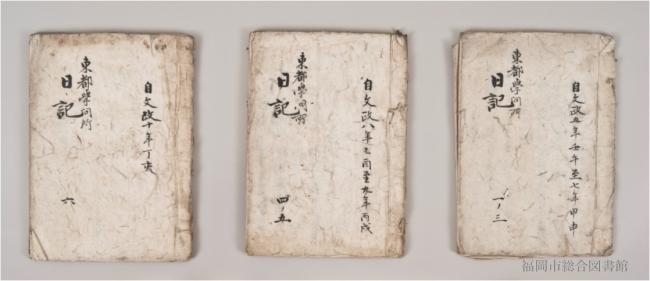 自文政五年壬午至七年甲申
東都學問所
日記
一ノ三
自文政八年乙酉至九年丙戌
東都學問所
日記
四ノ五
自文政十年丁亥
東都學問所
日記
六
福岡市総合図書館